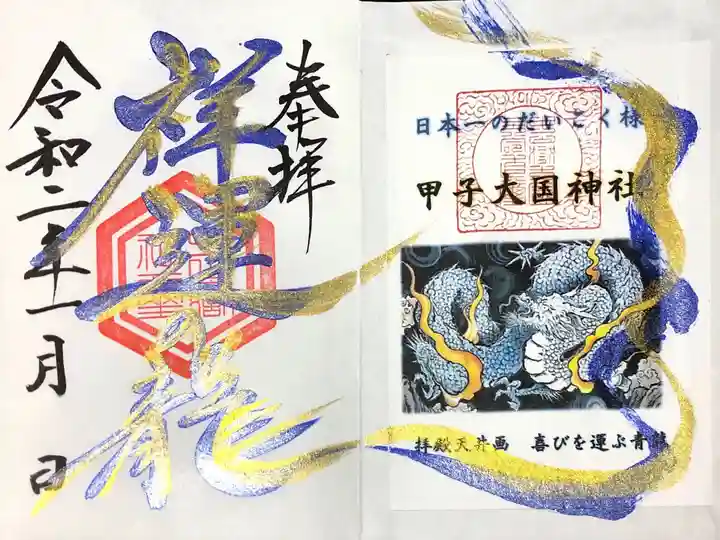 奉拝
祥運龍
令和二年十一月 日
日本一のだいこく様
甲子大国神社
拝殿天井画 喜びを運ぶ青龍